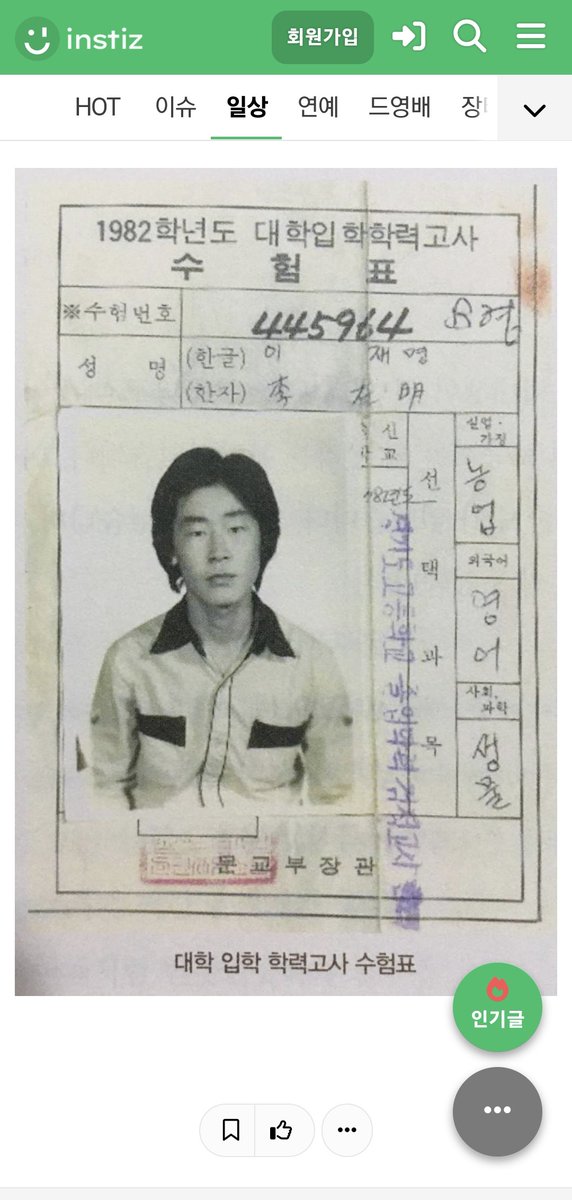 instiz
회원가입
HOT 이슈 일상 연예 드영배
1982학년도 대학입학학력고사
수 험 표
※수험번호 445964
성 명 (한글) 이 재 명
(한자) 李 在 明
실업·
가정
농업
선 택 과 목
외국어
영어
사회,
과학
생물
문교부장관
대학 입학 학력고사 수험표
인기글